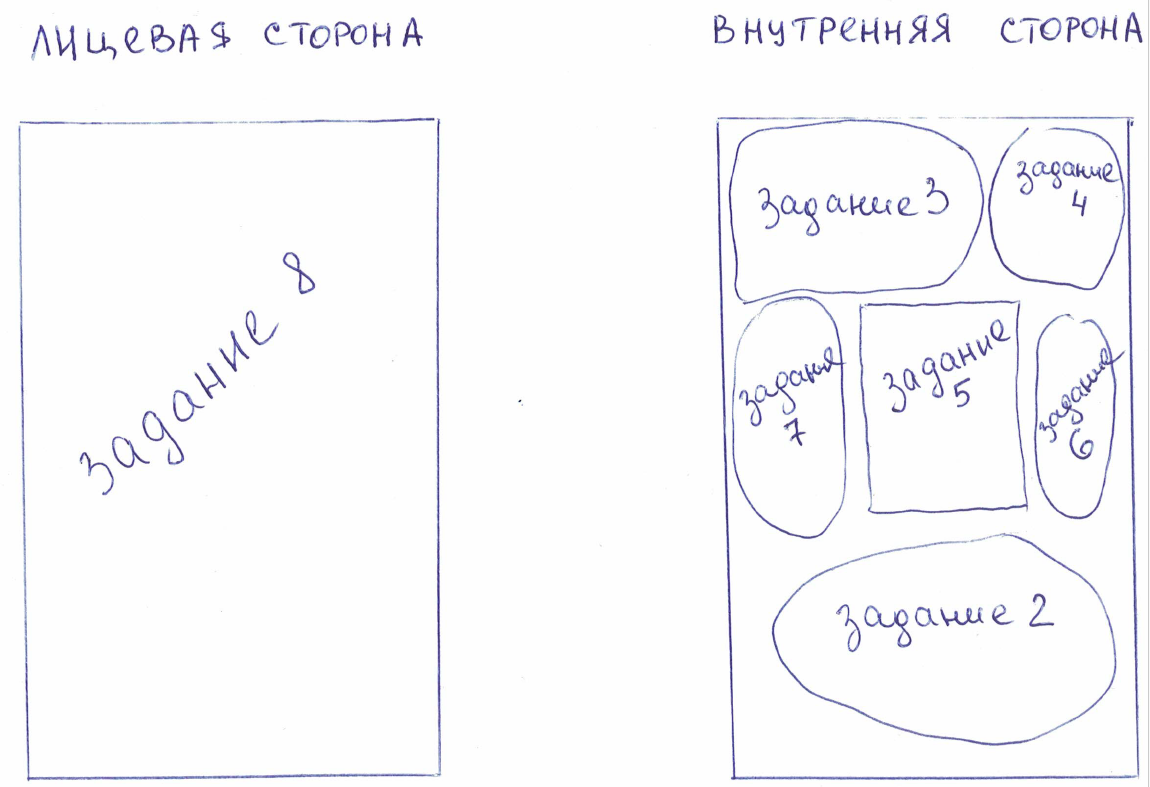 ЛИЦЕВАЯ СТОРОНА
задание 8
ВНУТРЕННЯЯ СТОРОНА
задание 3
задание
4
задание
7
задание
5
задание
6
задание 2